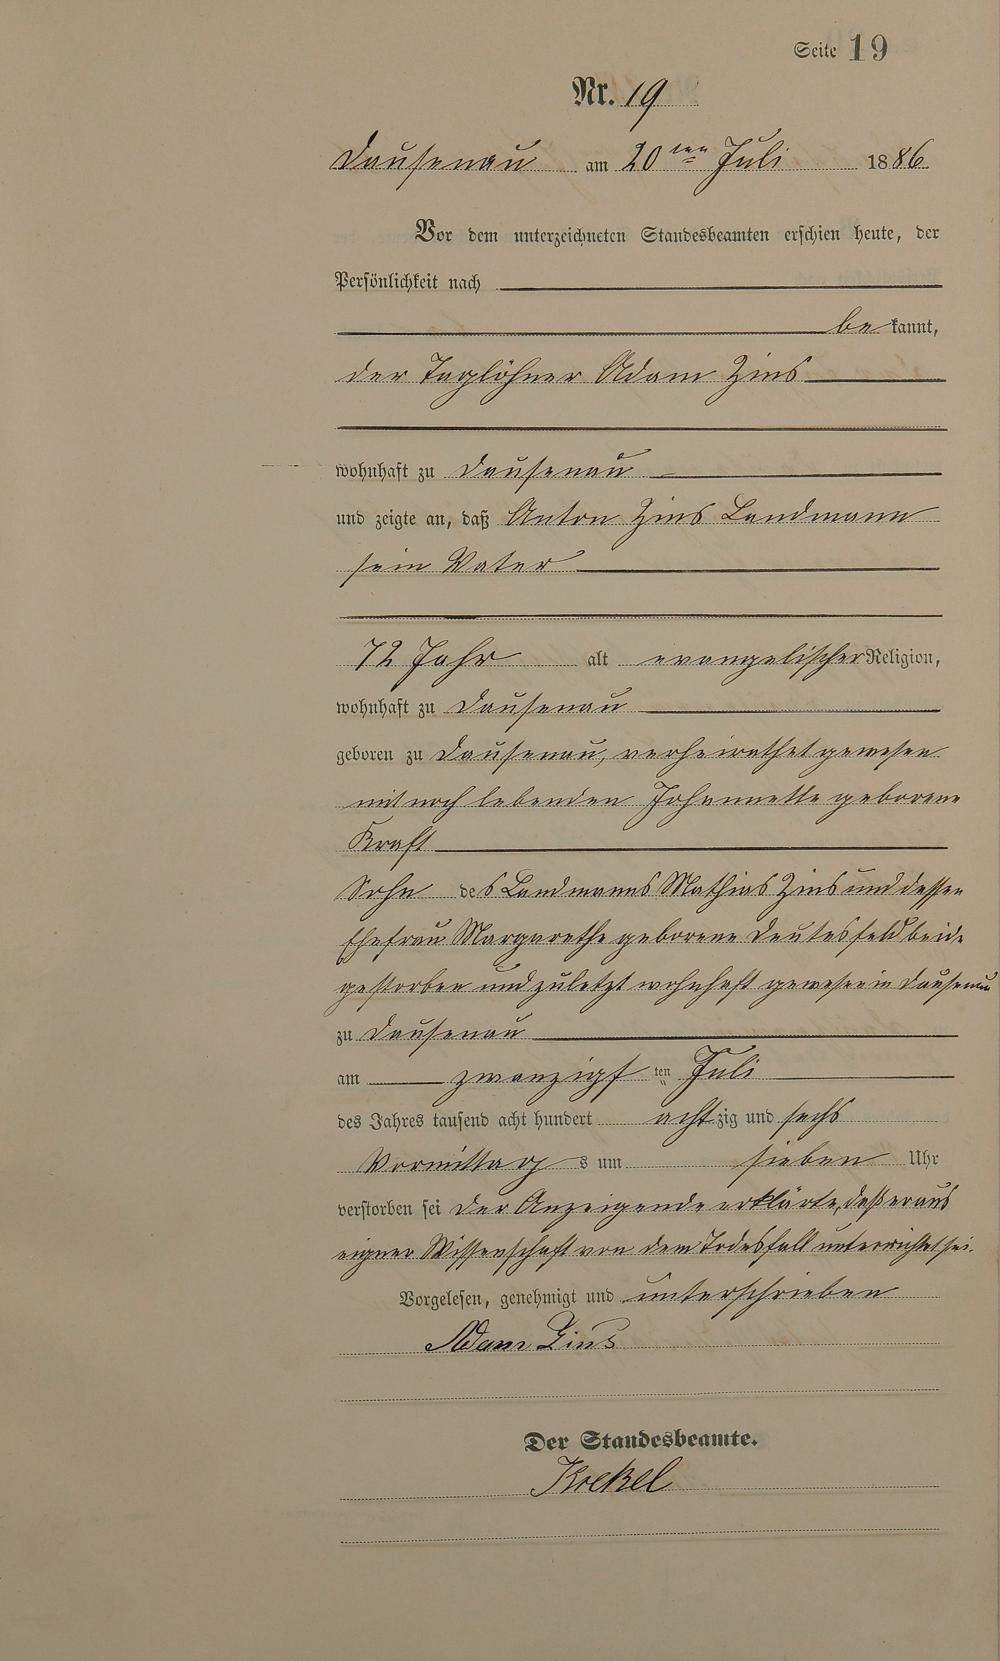 Seite 19
Nr. 19
Dausenau am 20ten Juli 1886
Vor dem unterzeichneten Standesbeamten erschien heute, der
Persönlichkeit nach
bekannt,
der Taglöhner Adam Zins
wohnhaft zu Dausenau
und zeigte an, daß Anton Zins Landmann
sein Vater
72 Jahr alt evangelischer Religion,
wohnhaft zu Dausenau
geboren zu Dausenau, verheirathet gewesen
mit noch lebenden Johannette geborene
Kraft
Sohn des Landmanns Mathias Zins und dessen
Ehefrau Margarethe geborene Deutesfeld beide
gestorben und zuletzt wohnhaft gewesen in Dausenau
zu Dausenau
am zwanzigsten Juli
des Jahres tausend acht hundert achtzig und sechs
Vormittags um sieben Uhr
verstorben sei Der Anzeigende erklärte, daß er aus
eigner Wissenschaft von dem Todesfall unterrichtet sei.
Vorgelesen, genehmigt und unterschrieben
Adam Zins
Der Standesbeamte.